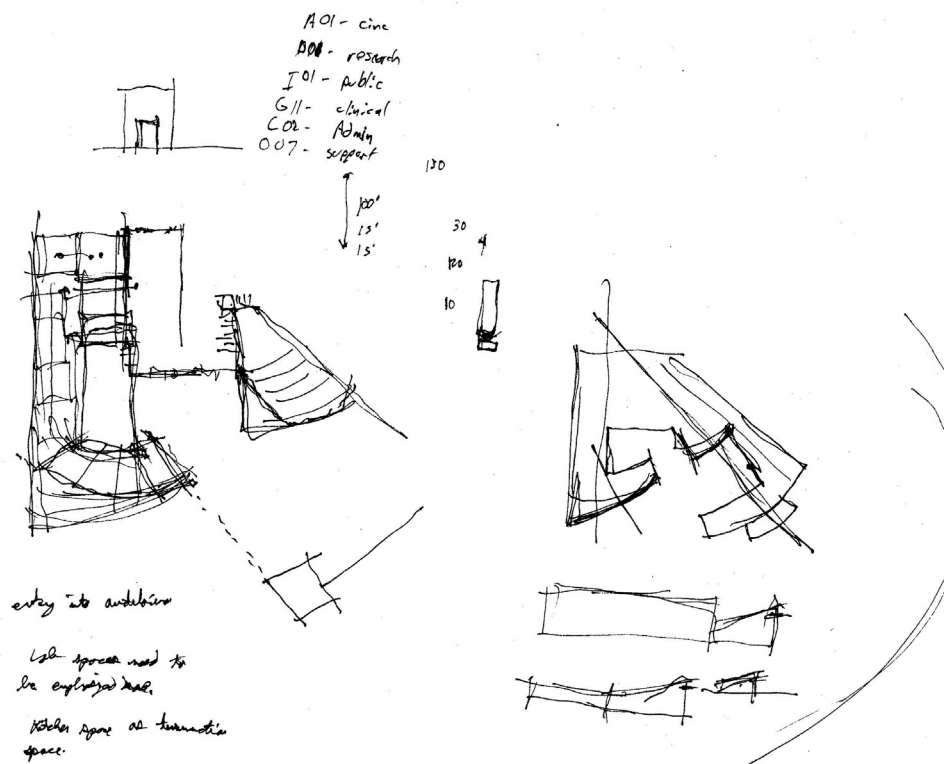 A01 - circ
research
I01 - public
G11 - clinical
C02 - Admin
007 - support
150
100'
15'
15'
30
120
10
entry into auditorium
Lab spaces need to
be emphasized
Kitchen space as termination
space.